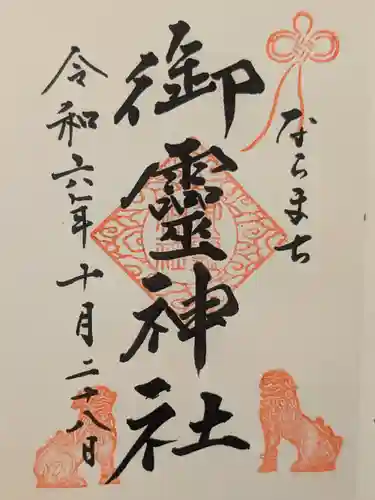 ならまち
御靈神社
令和六年十月二十八日